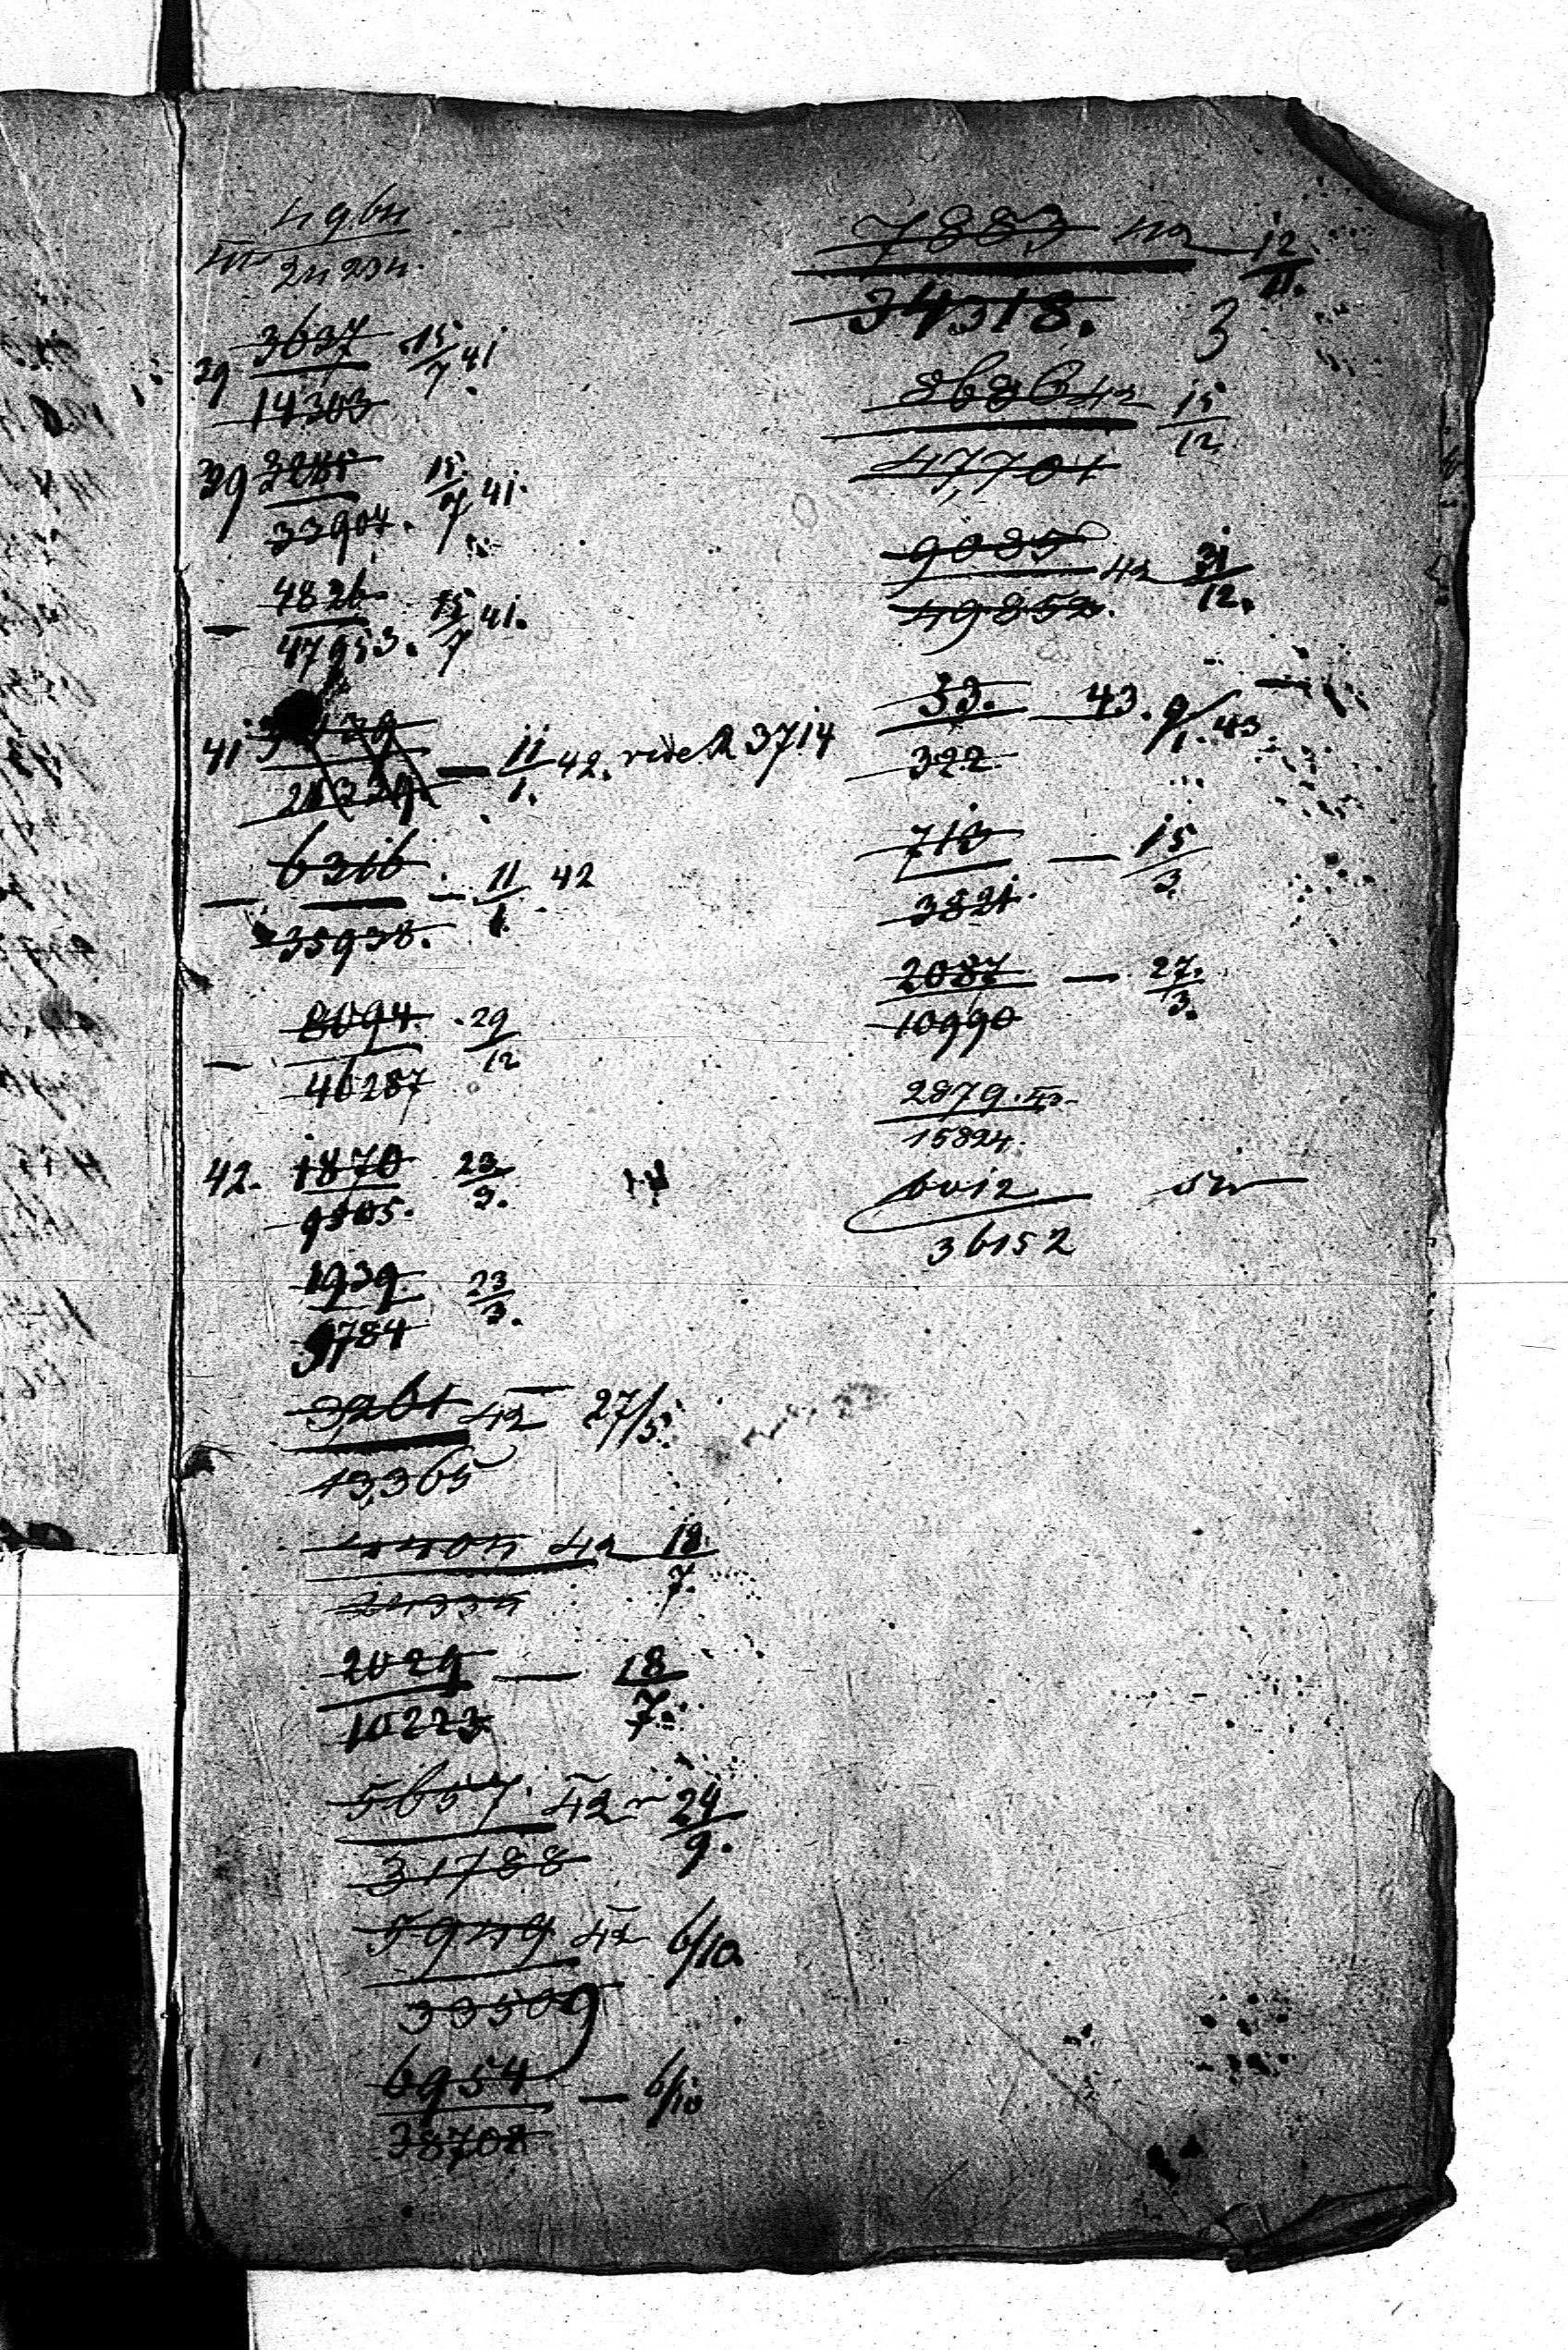 4964
24234
39 3637 15/7 41
14303
39 3285 15/7 41.
33904.
— 4826 15/7 41.
47953.
41 — 11/1. 42. vide R 3714
— 6316 — 11/1. 42
35938.
— 8094. 29/12
46287
42. 1870 23/3.
9505.
1939 23/3.
9784
3261 42 27/5.
13,365
42 18/7.
24334
2029 — 18/7.
10223
5657. 42 24/9.
31788
5949 42 6/10.
33509
6954 — 6/10
38708
7883 42 12/11.
34318.
3
8686 42 15/12
47,701
9085 42 31/12.
49852.
33. 43. 9/1. 43.
322.
713 — 15/3
3821.
2087 — 27./3.
10990
2879.
15824.
6012
36152